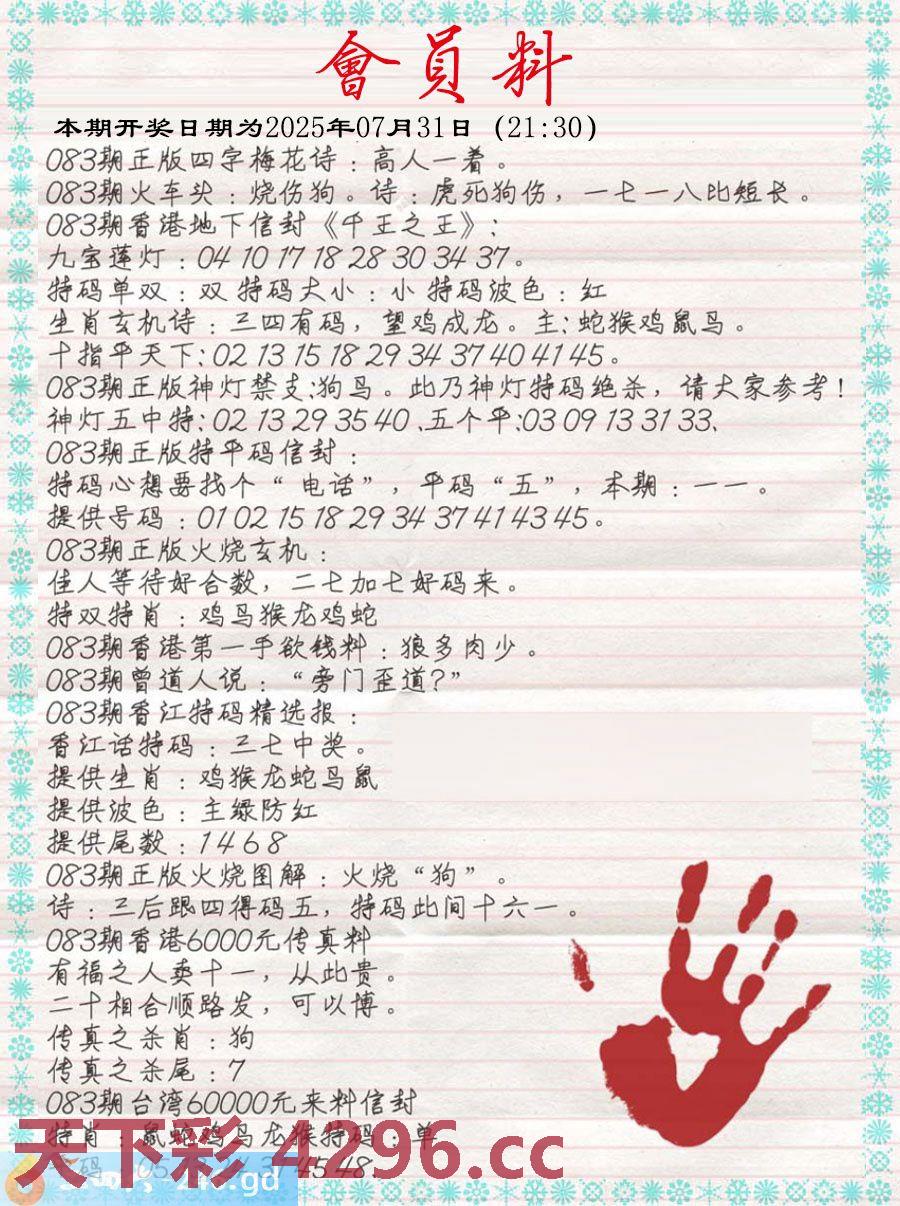 會員料
本期开奖日期为2025年07月31日 (21:30)
083期正版四字梅花诗：高人一着。
083期火车头：烧伤狗。诗：虎死狗伤，一七一八比短长。
083期香港地下信封《千王之王》：
九宝莲灯：04 10 17 18 28 30 34 37。
特码单双：双 特码大小：小 特码波色：红
生肖玄机诗：三四有码，望鸡成龙。主：蛇猴鸡鼠鸟。
十指平天下：02 13 15 18 29 34 37 40 41 45。
083期正版神灯禁支:狗鸟。此乃神灯特码绝杀，请大家参考！
神灯五中特：02 13 29 35 40、五个平:03 09 13 31 33、
083期正版特平码信封：
特码心想要找个“电话”，平码“五”，本期：一一。
提供号码：01 02 15 18 29 34 37 41 43 45。
083期正版火烧玄机：
佳人等待好合数，二七加七好码来。
特双特肖：鸡鸟猴龙鸡蛇
083期香港第一手欲钱料：狼多肉少。
083期曾道人说：“旁门歪道?”
083期香江特码精选报：
香江话特码：三七中奖。
提供生肖：鸡猴龙蛇鸟鼠
提供波色：主绿防红
提供尾数：1 4 6 8
083期正版火烧图解：火烧“狗”。
诗：三后跟四得码五，特码此间十六一。
083期香港6000元传真料
有福之人卖十一，从此贵。
二十相合顺路发，可以博。
传真之杀肖：狗
传真之杀尾：7
083期台湾60000元来料信封
特肖：鼠蛇鸡鸟龙猴特码：单
天下彩 4296.cc
45 48.